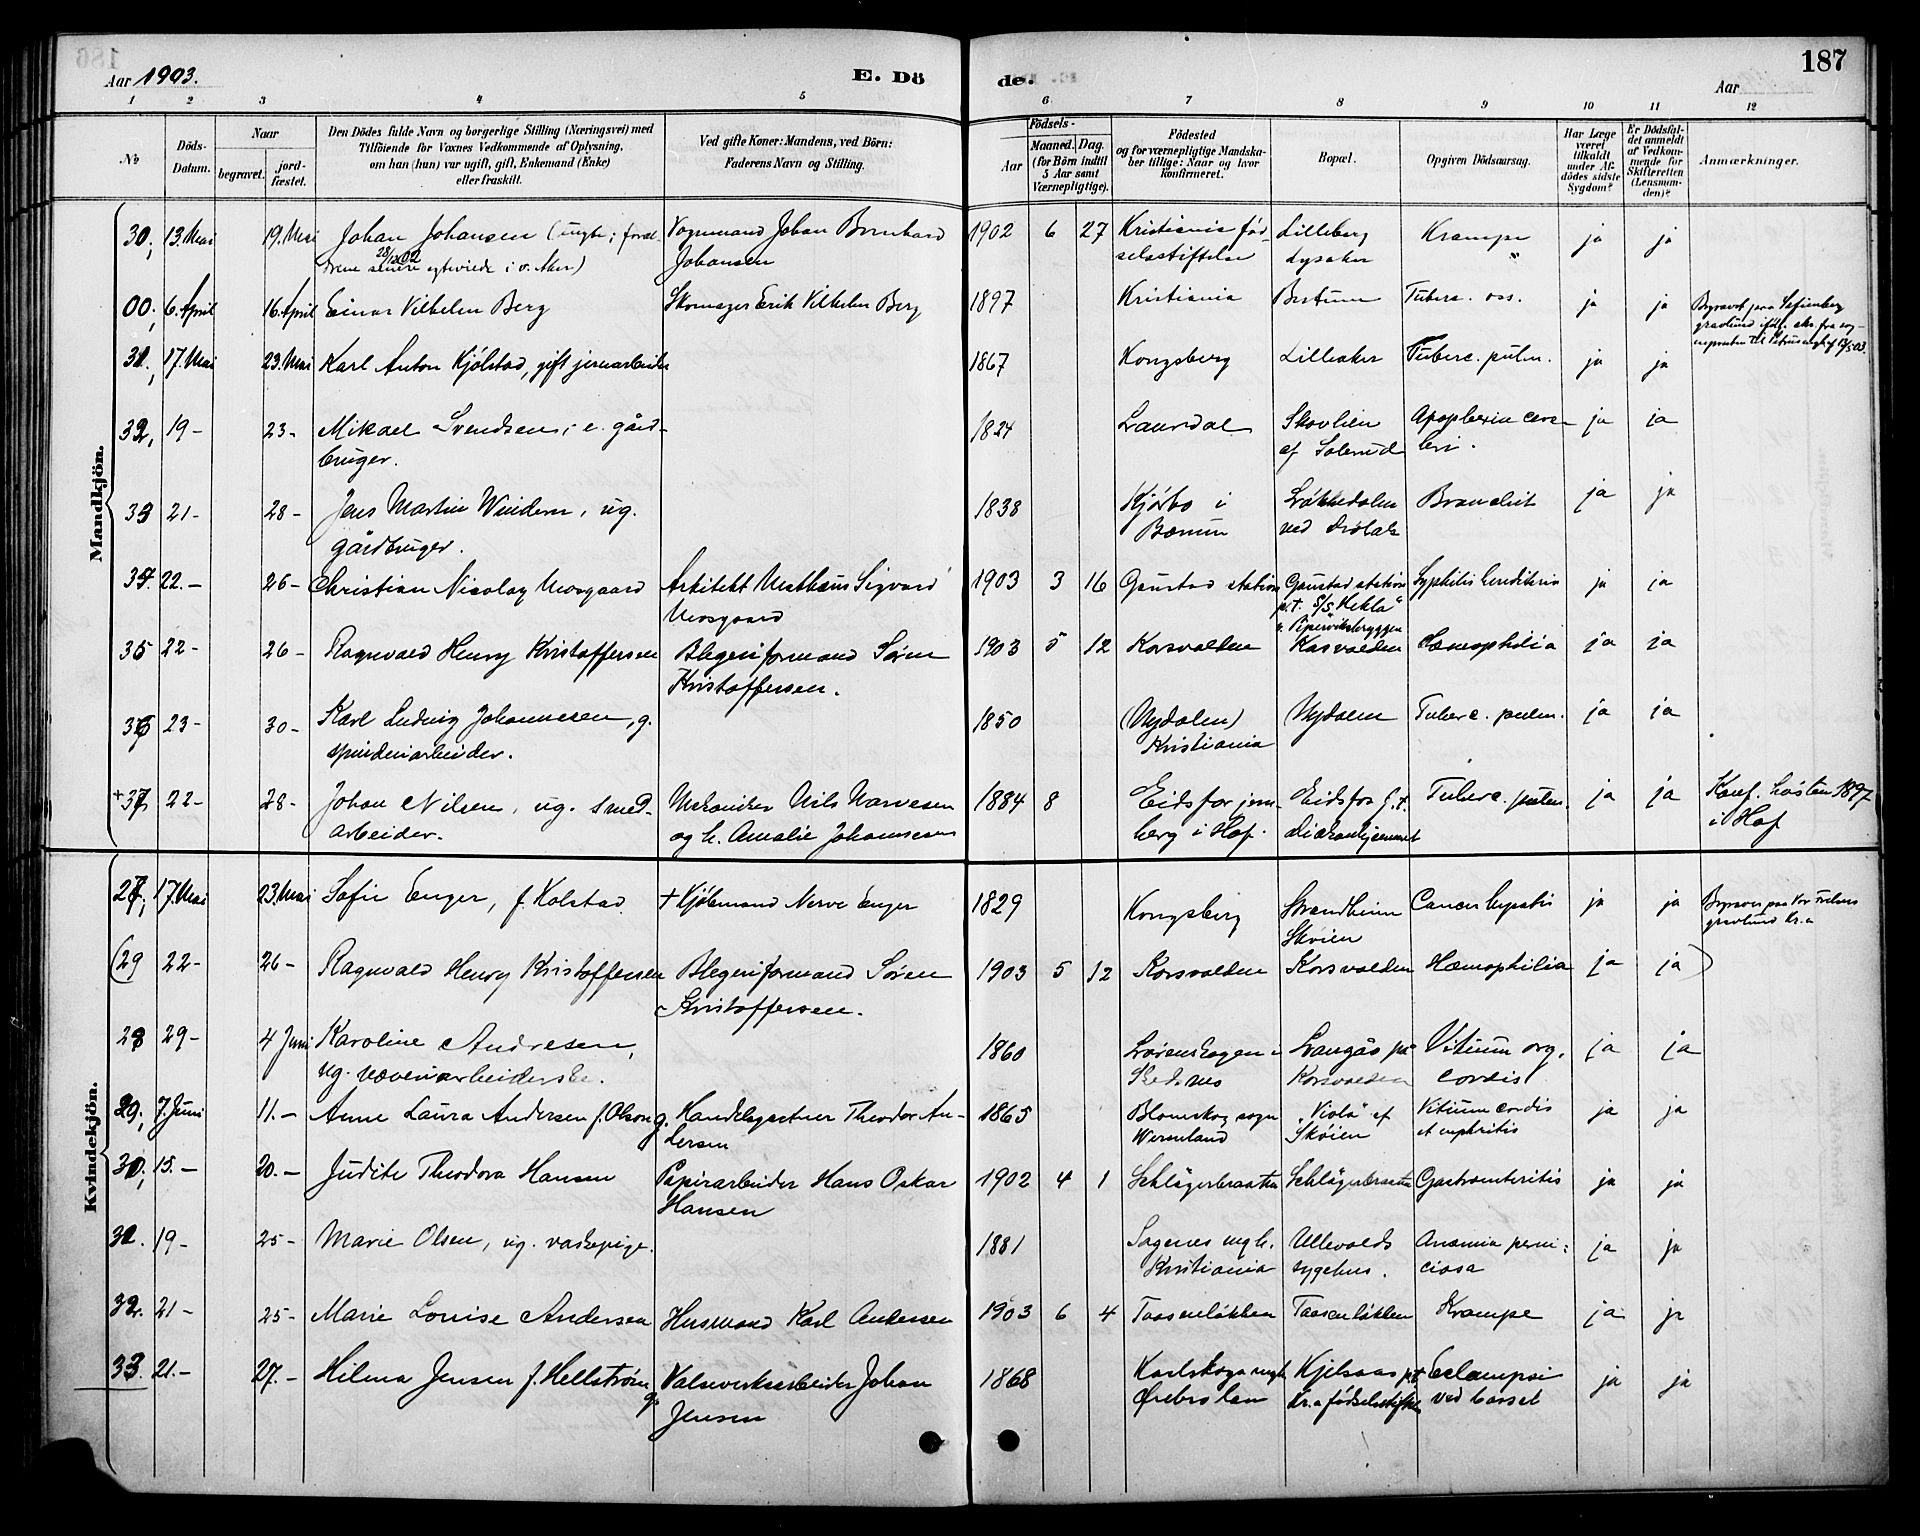 186
187
Aar 1903.
E. Dö
de.
Aar
1 2 3 4 5 6 7 8 9 10 11 12
No
Döds-
Datum.
Naar
begravet.
jord-
fæstet.
Den Dödes fulde Navn og borgerlige Stilling (Næringsvei) med
Tilföiende for Voxnes Vedkommende af Oplysning,
om han (hun) var ugift, gift, Enkemand (Enke)
eller fraskilt.
Ved gifte Koner: Mandens, ved Börn:
Faderens Navn og Stilling.
Födsels-
Aar
Maaned. Dag.
(for Börn indtil
5 Aar samt
Værnepligtige).
Födested
og for værnepligtige Mandska-
ber tillige: Naar og hvor
konfirmeret.
Bopæl.
Opgiven Dödsaarsag.
Har Læge
været
tilkaldt
under Af-
dödes sidste
Sygdom?
Er Dödsfal-
det anmeldt
af Vedkom-
mende for
Skifteretten
(Lensman-
den)?
Anmærkninger.
Mandkjön.
30, 13. Mai 19. Mai Johan Johansen (ungk; foræl- Vognmand Johan Bernhard 1902 6 27 Kristiania fød- Lilleberg Krampe ja ja
drene senere 28/12 02 egteviede i v. Aker) Johansen selsstiftelse Lysaker
00, 6. April 16. April Einar Vilhelm Berg Skomager Erik Vilhelm Berg 1897 Kristiania Bestum Tuberc. oss. ja ja Begravet paa Sofienberg
gravlund
31, 17. Mai 23. Mai Karl Anton Kjølstad, gift jernarbeider 1867 Kongsberg Lilleaker Tuberc. pulm. ja ja
32, 19 - 23 - Mikael Svendsen, e. gård- 1824 Laurdal Skovlien Apoplexia cere- ja ja
bruger. af Solerud bri.
33 21 - 28 - Jens Martin Windern, ug. 1838 Kjørbo i Løkkedalen Bronchit ja ja
gårdbruger. Bærum ved Drøbak
34. 22. - 26 - Christian Nicolay Mosgaard Arkitekt Matthæus Sigvard 1903 3 16 Gaustad station Gaustad station Syphilis hereditaria ja ja
Mosgaard p.t. S/S "Hekla"
v. Pipervikabryggen
35 22 - 26 - Ragnvald Henry Kristoffersen Blegeriformand Søren 1903 5 12 Korsvolden Korsvolden Hæmophilia ja ja
Kristoffersen.
36 23 - 30 - Karl Ludvig Johannesen, g. 1850 (Nydalen) Nydalen Tuberc. pulm. ja ja
spinderiarbeider. Kristiania
+37 22 - 28 - Johan Nilsen, ug. smed- Mekaniker Nils Narvesen 1884 8 Eidsfos jern- Eidsfos p.t. Tuberc. pulm. ja ja Konf. høsten 1897
arbeider. og h. Amalie Johannesen verg i Hof. Diakonhjemmet i Hof
Kvindekjön.
27, 17. Mai 23. Mai Sofie Enger, f. Kolstad + Kjøbmand Nerve Enger 1829 Kongsberg Strandheim Cancer hepatis ja ja Begravet paa Vor Frelsers
Skøien gravlund Kr.a
(29 22 - 26 - Ragnvald Henry Kristoffersen Blegeriformand Søren 1903 5 12 Korsvolden Korsvolden Hæmophilia ja ja )
Kristoffersen.
28 29 - 4 Juni Karoline Andresen, 1860 Lørenskogen i Langås på Vitium org. ja ja
ug. væveriarbeiderske. Skedsmo Korsvolden cordis
29, 7. Juni 11. - Anne Laura Andersen f. Olson g. Handelsgartner Theodor An- 1865 Blomskog sogn "Viola" af Vitium cordis ja ja
dersen Wermland Skøien et nephritis
30, 15. - 20. - Judite Theodora Hansen Papirarbeider Hans Oskar 1902 4 1 Schlägerbraaten Schlägerbraaten Gastroenteritis ja ja
Hansen
31. 19 - 25 - Marie Olsen, ug. vaskepige. 1881 Sagenes mgh. Ullevolds Anæmia perni- ja ja
Kristiania sygehus. ciosa
32. 21 - 25 - Marie Louise Andersen Husmand Karl Andersen 1903 6 4 Taasenløkken Taasenløkken Krampe ja ja
33. 21. - 27. - Hilma Jensen f. Hellstrøm g. Valseverksarbeider Johan 1868 Karlskoga mgh. Kjelsaas p.t. Eclampsi ja ja
Jensen Ørebro län Kr.a fødselsstiftelse ved barsel